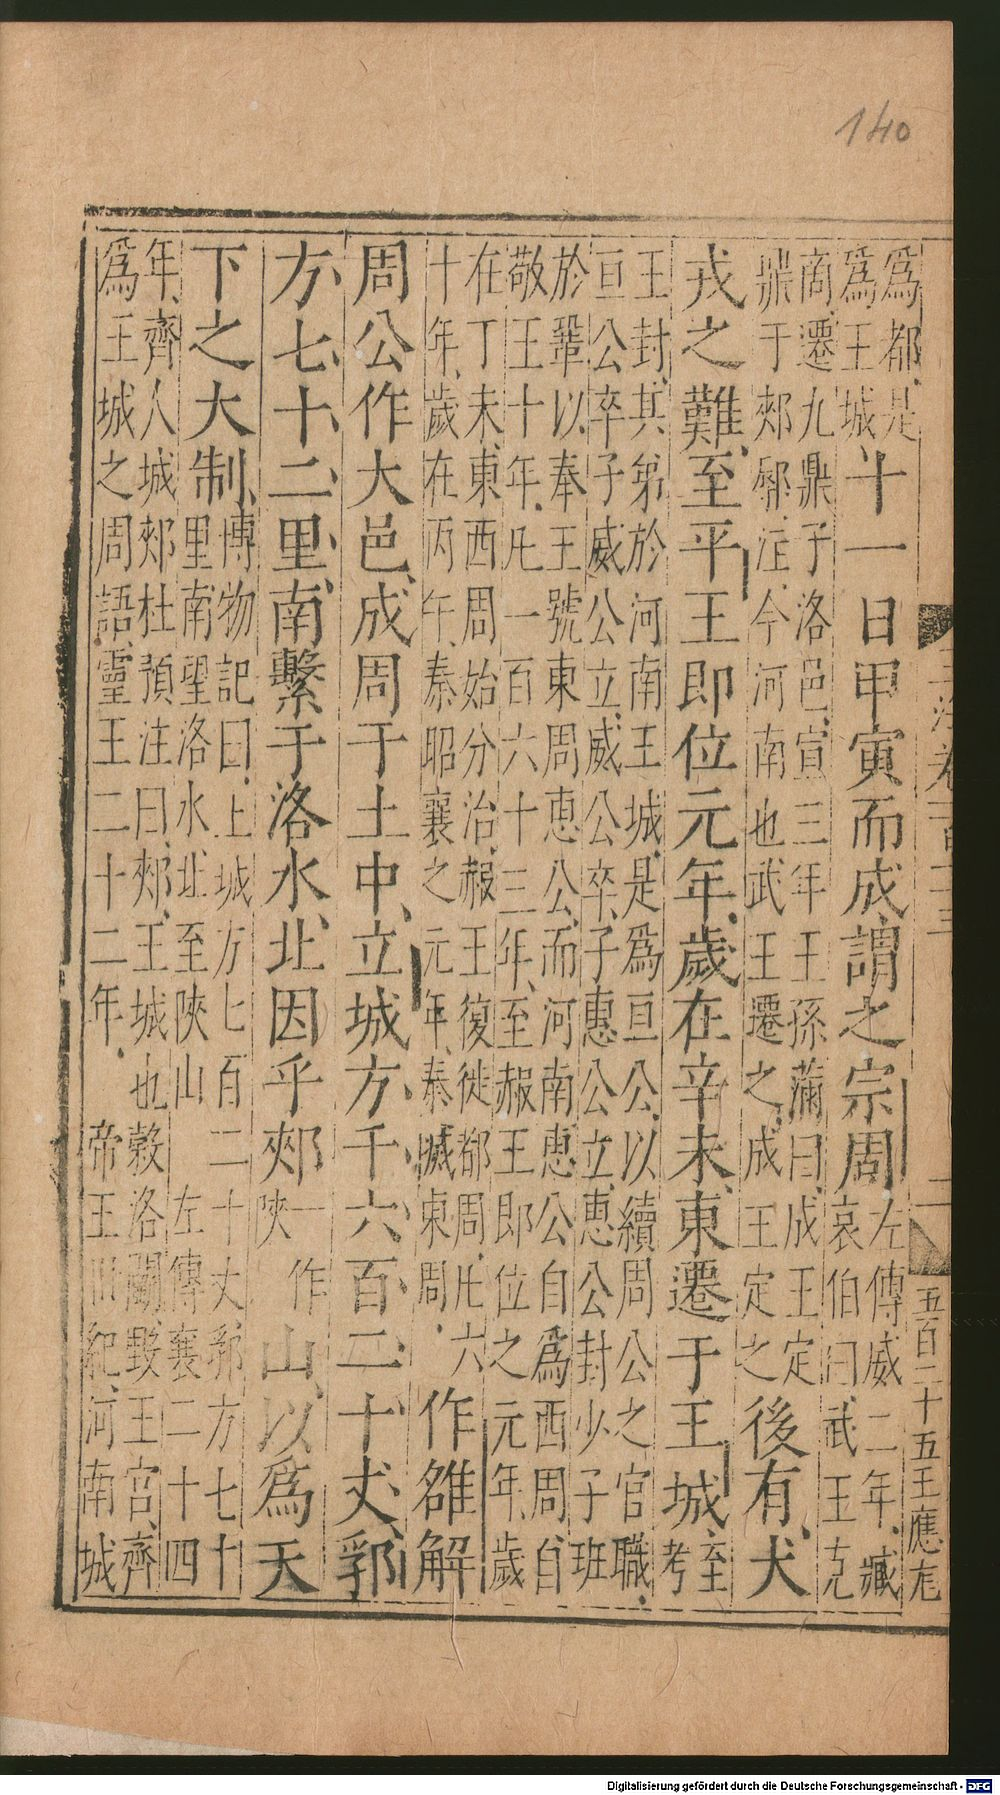 140
玉海卷一百七十三 二 五百二十五王應
爲都是
爲王城
十一日甲寅而成謂之宗周
左傳威二年臧
哀伯曰武王克
商遷九鼎于洛邑宣三年王孫滿曰成王定
鼎于郟鄏注今河南也武王遷之成王定之
後有犬
戎之難至平王即位元年歲在辛未東遷于王城
至
考
王封其弟於河南王城是爲亘公以續周公之官職
亘公卒子威公立威公卒子惠公立惠公封少子班
於鞏以奉王號東周惠公而河南惠公自爲西周自
敬王十年凡一百六十三年至赧王即位之元年歲
在丁未東西周始分治赧王復徙都周凡六
十年歲在丙午秦昭襄之元年秦滅東周
作雒解
周公作大邑成周于土中立城方千六百二十丈郛
方七十二里南繫于洛水北因乎郟
一作
陜
山以爲天
下之大制
博物記曰上城方七百二十丈郛方七十
里南望洛水北至陜山 左傳襄二十四
年齊人城郟杜預注曰郟王城也穀洛鬬毀王宫齊
爲王城之周語靈王二十二年 帝王世紀河南城
Digitalisierung gefördert durch die Deutsche Forschungsgemeinschaft - DFG